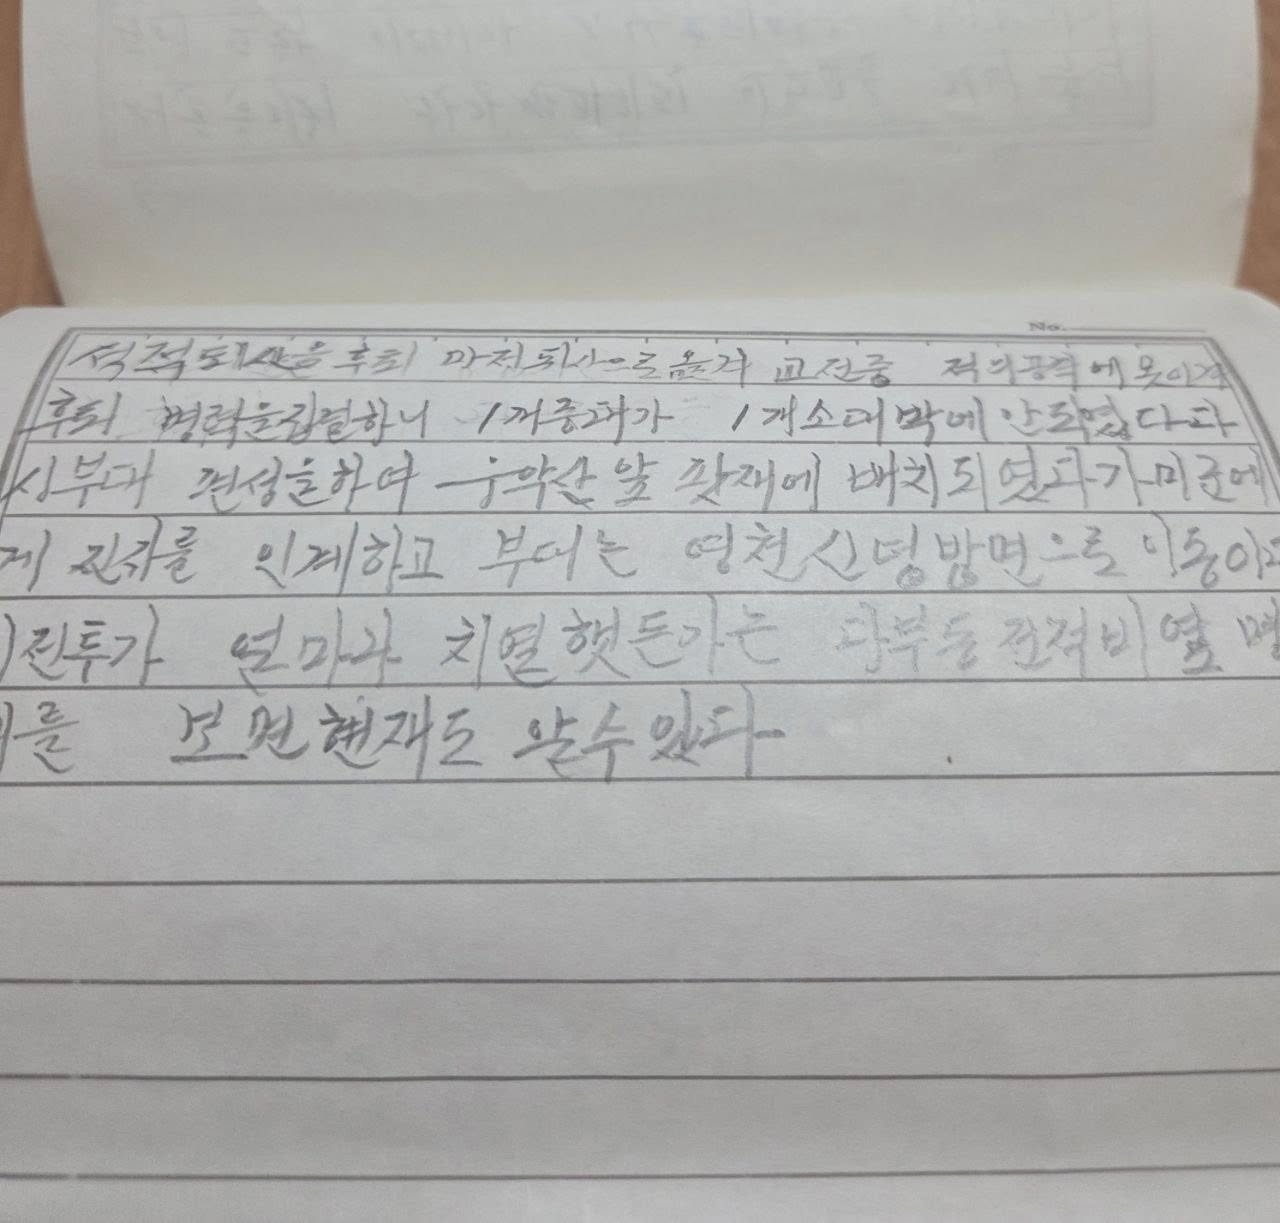 No.
후퇴 마전퇴산으로 옮겨 교전중 적의공격에못이겨
후퇴 병력을집결하니 1개중대가 1개소대박에 안되였다 다
시부대 편성을하여 유악산 앞 팟재에 배치되엿다가 미군에
게 진지를 인계하고 부대는 영천 신녕방면으로 이동이
전투가 얼마나 치열햇든가는 다부동전적비 옆
를 보면현재도 알수있다